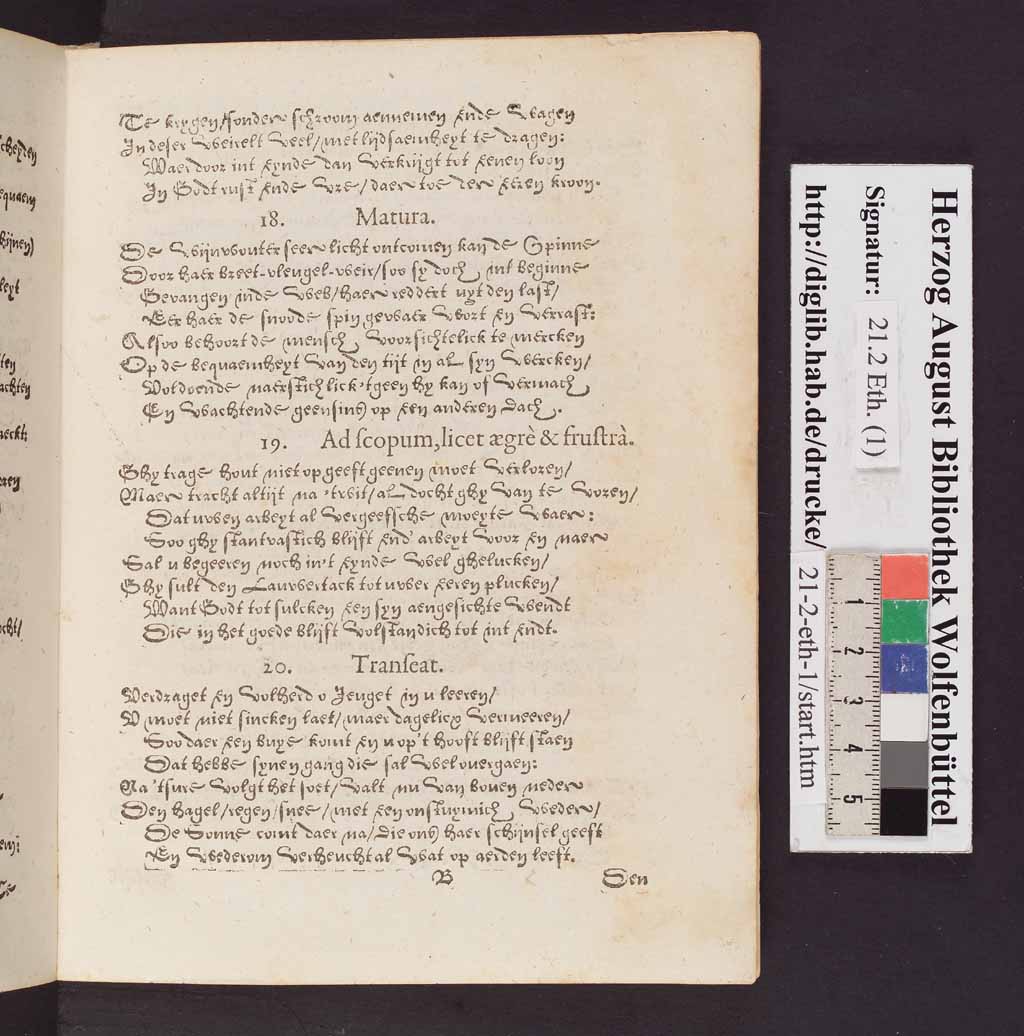 Te krygen/sonder schroom aennemen ende wagen
In deser werelt veel/met lijdsaemheyt te dragen:
Waer door int eynde dan verkrijgt tot eenen loon
In Godt rust ende vre/daer toe der eeren kroon.
18. Matura.
De wijnwouter seer licht ontcomen kan de Spinne
Door haer breet-vleugel-weir/soo sy doch int beginne
Gevangen inde web/haer reddert uyt den last/
Eer haer de snoode spin gewaer wort en verrast:
Alsoo behoort de mensch voorsichtelick te mercken
Op de bequaemheyt van den tijt in al syn wercken/
Voldoende naerstichlick 'tgeen hy kan of vermach
En wachtende geensins op een anderen dach.
19. Ad scopum, licet ægrè & frustrà.
Ghy trage hout niet op geeft geenen moet verloren/
Maer tracht altijt na 'twit/al docht ghy van te voren/
Dat uwen arbeyt al vergeefsche moeyte waer:
Soo ghy stantvastich blijft end' arbeyt voor en naer
Sal u begeeren noch in't eynde wel ghelucken/
Ghy sult den Lauwertack tot uwer eeren plucken/
Want Godt tot sulcken een syn aengesichte wendt
Die in het goede blijft volstandich tot int endt.
20. Transeat.
Verdraget en volherd o Jeuget in u leeren/
V moet niet sincken laet/maer dagelicx vermeeren/
Soo daer een buye komt en u op't hooft blijft staen
Dat hebbe synen gang die sal wel overgaen:
Na 'tsure volgt het soet/valt nu van boven neder
Den hagel/regen/snee/met een onstuymich weder/
De Sonne comt daer na/die ons haer schijnsel geeft
En wederom verheucht al wat op aerden leeft.
B
Den
cheyden
equaem
kijnen)
leyt
ten
achten
aeckt:
eren
ocht/
em:
Te
Herzog August Bibliothek Wolfenbüttel
Signatur: 21.2 Eth. (1)
http://diglib.hab.de/drucke/ 21-2-eth-1/start.htm
1 2 3 4 5